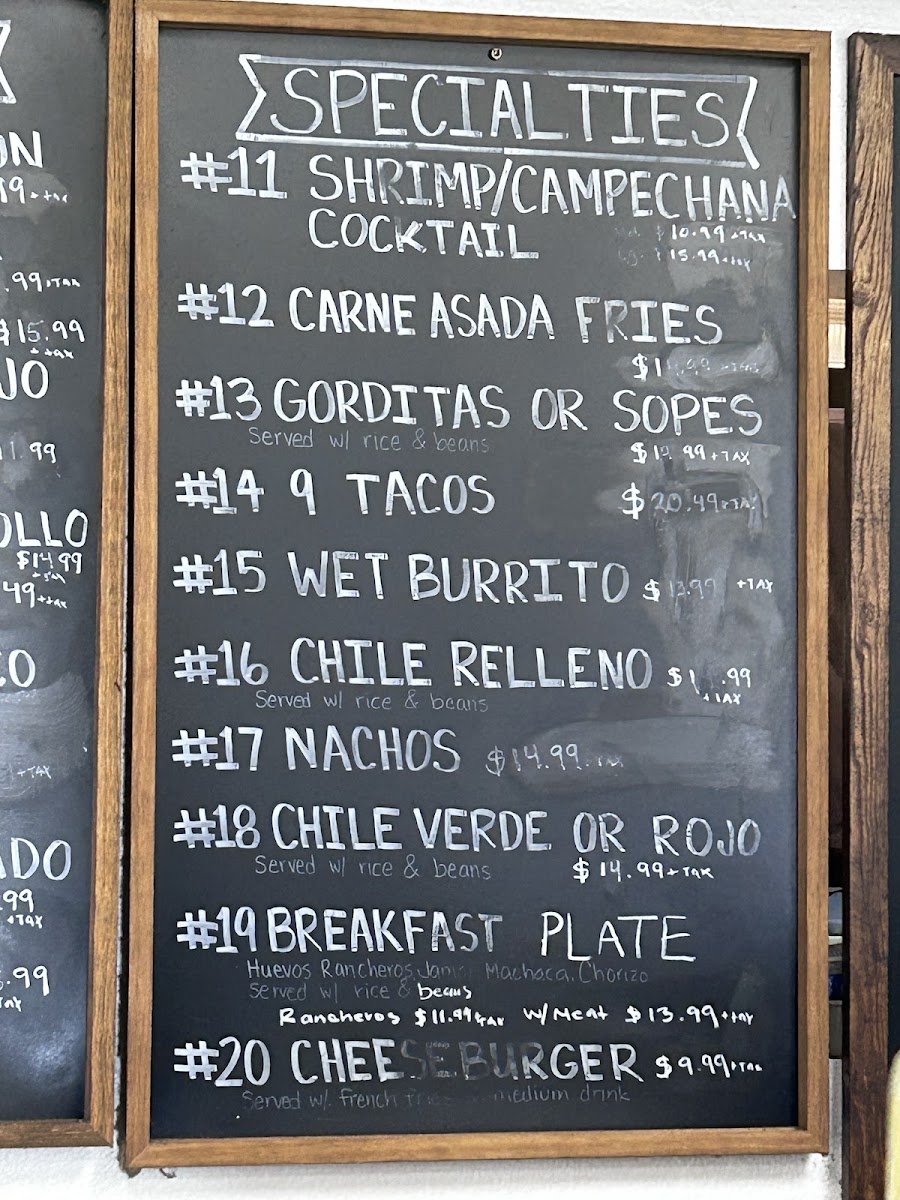 SPECIALTIES
#11 SHRIMP/CAMPECHANA
COCKTAIL
$10.99 + TAX
$15.99 + tax
#12 CARNE ASADA FRIES
#13 GORDITAS OR SOPES
Served w/ rice & beans
+ TAX
#14 9 TACOS $20.49 + TAX
#15 WET BURRITO $13.99 + TAX
#16 CHILE RELLENO
.99
+ TAX
Served w/ rice & beans
#17 NACHOS $14.99 + tax
#18 CHILE VERDE OR ROJO
Served w/ rice & beans $14.99 + tax
#19 BREAKFAST PLATE
Huevos Rancheros, Machaca, Chorizo
Served w/ rice & beans
Rancheros $11.99 + tax w/ Meat $13.99 + tax
#20 CHEESEBURGER $9.99 + tax
Served w/ french medium drink
$15.99
+ tax
JO
$14.99
+ tax
49 + tax
+ TAX
ADO
.99
+ TAX
.99